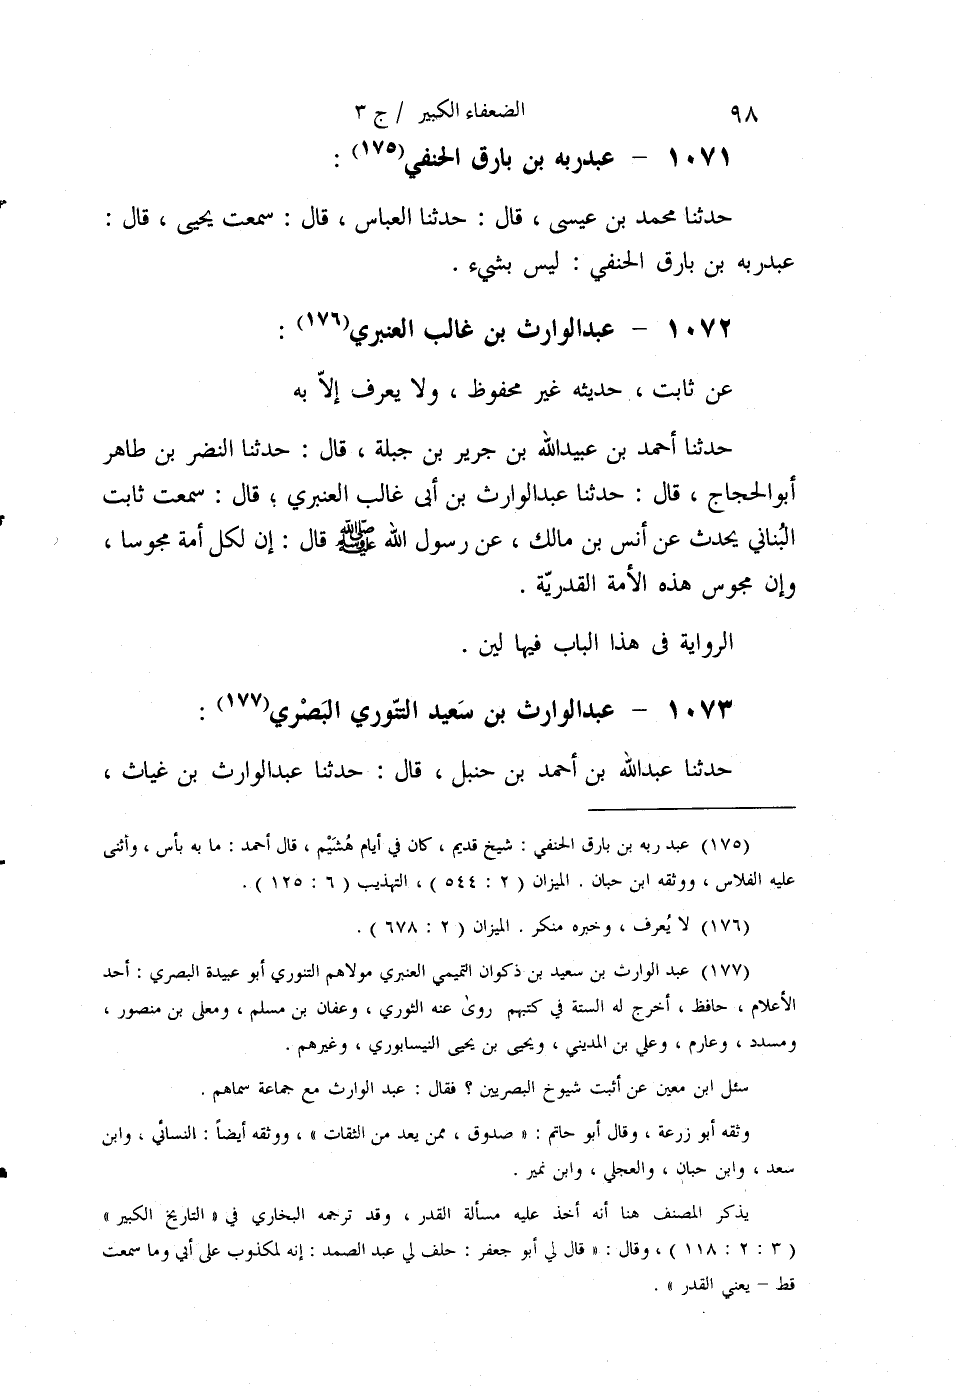 ٩٨ الضعفاء الكبير / ج ٣
١٠٧١ – عبدربه بن بارق الحنفي(١٧٥) :
حدثنا محمد بن عيسى ، قال : حدثنا العباس ، قال : سمعت يحيى ، قال :
عبدربه بن بارق الحنفي : ليس بشيء .
١٠٧٢ – عبدالوارث بن غالب العنبري(١٧٦) :
عن ثابت ، حديثه غير محفوظ ، ولا يعرف إلاّ به
حدثنا أحمد بن عبيدالله بن جرير بن جبلة ، قال : حدثنا النضر بن طاهر
أبوالحجاج ، قال : حدثنا عبدالوارث بن أبى غالب العنبري ، قال : سمعت ثابت
البُناني يحدث عن أنس بن مالك ، عن رسول الله ﷺ قال : إن لكل أمة مجوسا ،
وإن مجوس هذه الأمة القدريّة .
الرواية فى هذا الباب فيها لين .
١٠٧٣ – عبدالوارث بن سَعيد التّنوري البَصْري(١٧٧) :
حدثنا عبدالله بن أحمد بن حنبل ، قال : حدثنا عبدالوارث بن غياث ،
(١٧٥) عبد ربه بن بارق الحنفي : شيخ قديم ، كان في أيام هُشَيْم ، قال أحمد : ما به بأس ، وأثنى
عليه الفلاس ، ووثقه ابن حبان . الميزان ( ٢ : ٥٤٤ ) ، التهذيب ( ٦ : ١٢٥ ) .
(١٧٦) لا يُعرف ، وخبره منكر . الميزان ( ٢ : ٦٧٨ ) .
(١٧٧) عبد الوارث بن سعيد بن ذكوان التميمي العنبري مولاهم التنوري أبو عبيدة البصري : أحد
الأعلام ، حافظ ، أخرج له الستة في كتبهم روىٰ عنه الثوري ، وعفان بن مسلم ، ومعلى بن منصور ،
ومسدد ، وعارم ، وعلي بن المديني ، ويحيى بن يحيى النيسابوري ، وغيرهم .
سئل ابن معين عن أثبت شيوخ البصريين ؟ فقال : عبد الوارث مع جماعة سماهم .
وثقه أبو زرعة ، وقال أبو حاتم : « صدوق ، ممن يعد من الثقات » ، ووثقه أيضاً : النسائي ، وابن
سعد ، وابن حبان ، والعجلي ، وابن نمير .
يذكر المصنف هنا أنه أخذ عليه مسألة القدر ، وقد ترجمه البخاري في « التاريخ الكبير »
( ٣ : ٢ : ١١٨ ) ، وقال : « قال لي أبو جعفر : حلف لي عبد الصمد : إنه لمكذوب على أبي وما سمعت
قط – يعني القدر » .